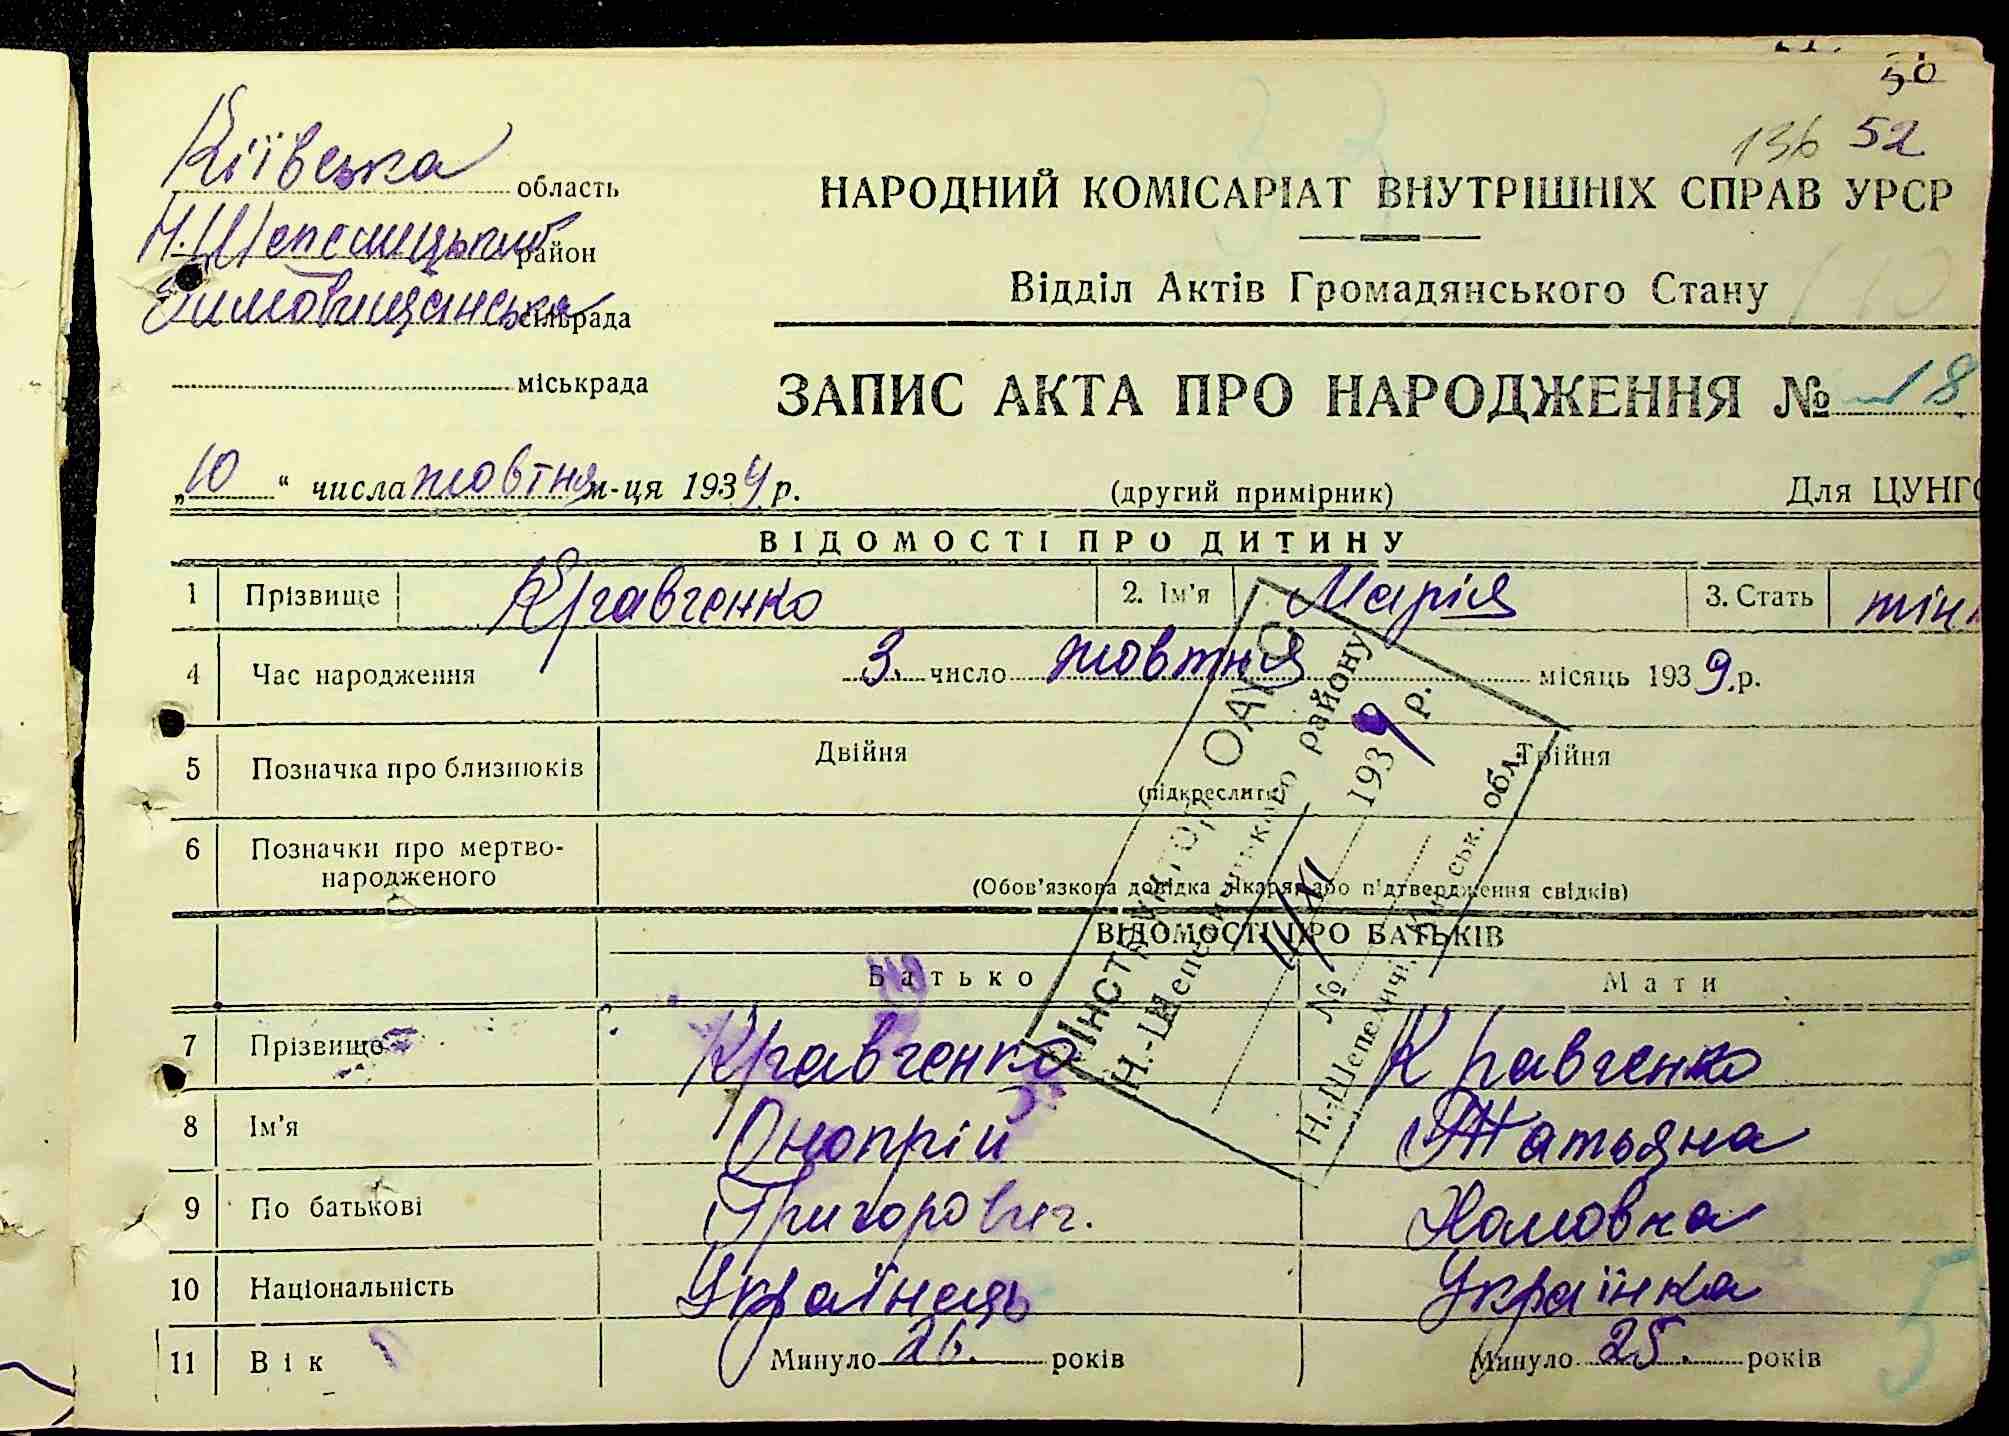 50
136 52
Київська область
Н.Шепелицький район
Зимовищанська сільрада
міськрада
НАРОДНИЙ КОМІСАРІАТ ВНУТРІШНІХ СПРАВ УРСР
Відділ Актів Громадянського Стану
ЗАПИС АКТА ПРО НАРОДЖЕННЯ № 18
„10“ числа жовтня м-ця 1939 р.
(другий примірник)
Для ЦУНГО
ВІДОМОСТІ ПРО ДИТИНУ
1 Прізвище Кравченко 2. Ім'я Марія 3. Стать жін
4 Час народження 3. число жовтня місяць 1939.р.
5 Позначка про близнюків Двійня Трійня
(підкреслити)
6 Позначки про мертво-
народженого
(Обов'язкова довідка лікаря або підтвердження свідків)
ВІДОМОСТІ ПРО БАТЬКІВ
Батько Мати
7 Прізвище Кравченко Кравченко
8 Ім'я Онопрій Татьяна
9 По батькові Григорович. Хомовна
10 Національність Українець Українка
11 Вік Минуло 26. років Минуло 25. років
Інструктор ОАГС
Н.-Шепелицького району
11/XI 1939 р.
№
Н.-Шепеличі, Київськ. обл.
5